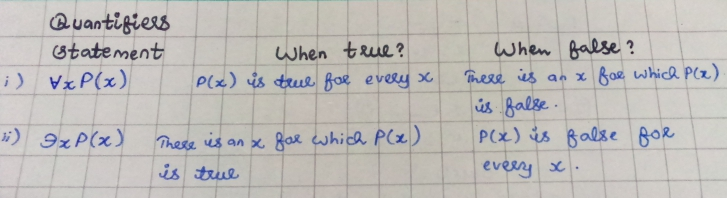 Quantifiers
Statement When true? When false?
i) ∀xP(x) P(x) is true for every x There is an x for which P(x)
is false.
ii) ∃xP(x) There is an x for which P(x) P(x) is false for
is true every x.